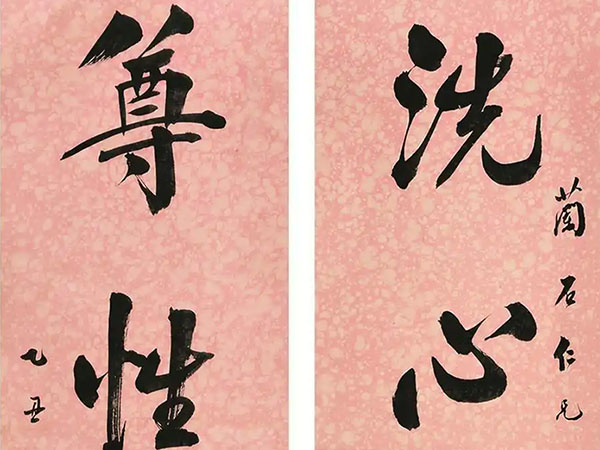 洗心
蘭石仁兄
尊性
乙丑